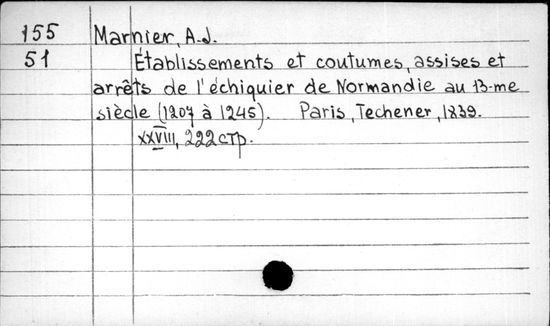 155 Marnier, A.J.
51 Établissements et coutumes, assises et
arrêts de l'échiquier de Normandie au 13-me
siècle (1207 à 1245). Paris, Techener, 1839.
XXVIII, 222 стр.